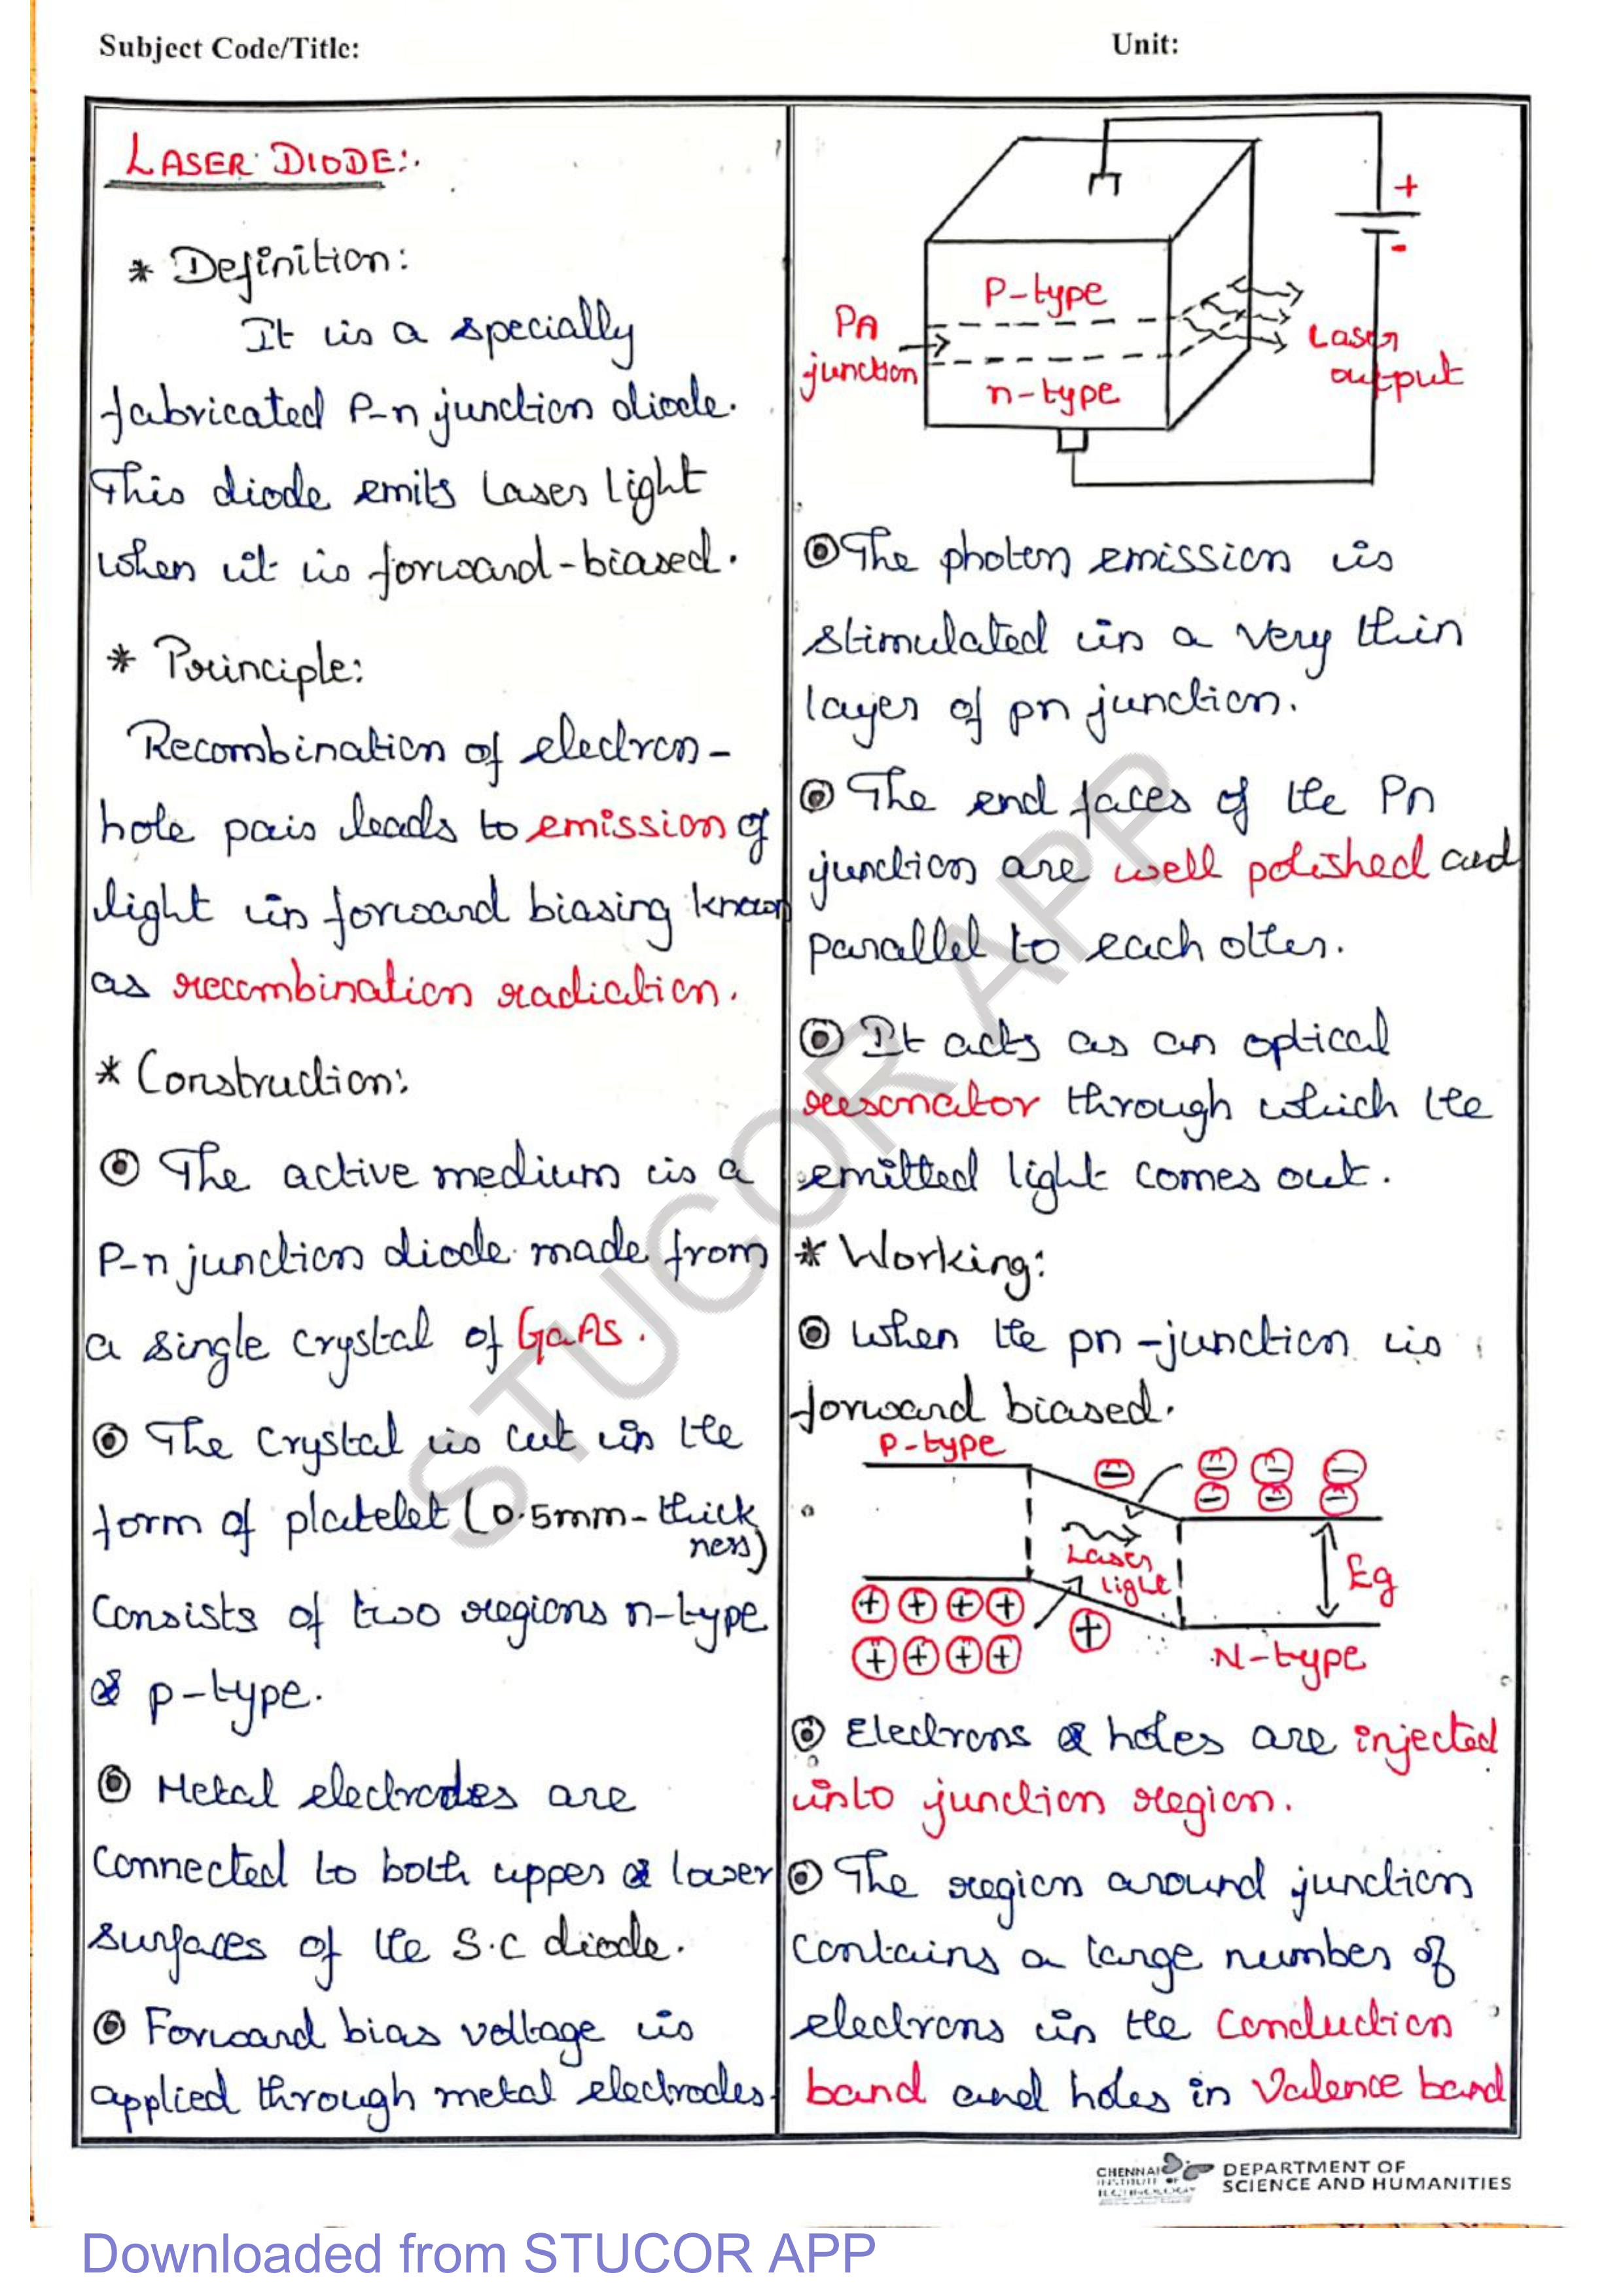 Subject Code/Title:
Unit:
LASER DIODE:
* Definition:
It is a specially
fabricated P-n junction diode.
This diode emits Laser light
when it is forward-biased.
* Principle:
Recombination of electron-
hole pair leads to emission of
light in forward biasing known
as recombination radiation.
* Construction:
The active medium is a
P-n junction diode made from
a single crystal of GaAs.
The crystal is cut in the
form of platelet (0.5mm-thick
ness)
Consists of two regions n-type
& p-type.
Metal electrodes are
Connected to both upper & lower
surfaces of the S.C diode.
Forward bias voltage is
applied through metal electrodes.
+
-
P-type
Pn
junction
n-type
Laser
output
The photon emission is
stimulated in a very thin
layer of pn junction.
The end faces of the Pn
junction are well polished and
parallel to each other.
It acts as an optical
resonator through which the
emitted light comes out.
* Working:
When the pn-junction is
forward biased.
P-type
Laser
light
Eg
N-type
Electrons & holes are injected
into junction region.
The region around junction
contains a large number of
electrons in the conduction
band and holes in Valence band
STUCOR APP
CHENNAI
INSTITUTE OF
TECHNOLOGY
DEPARTMENT OF
SCIENCE AND HUMANITIES
Downloaded from STUCOR APP